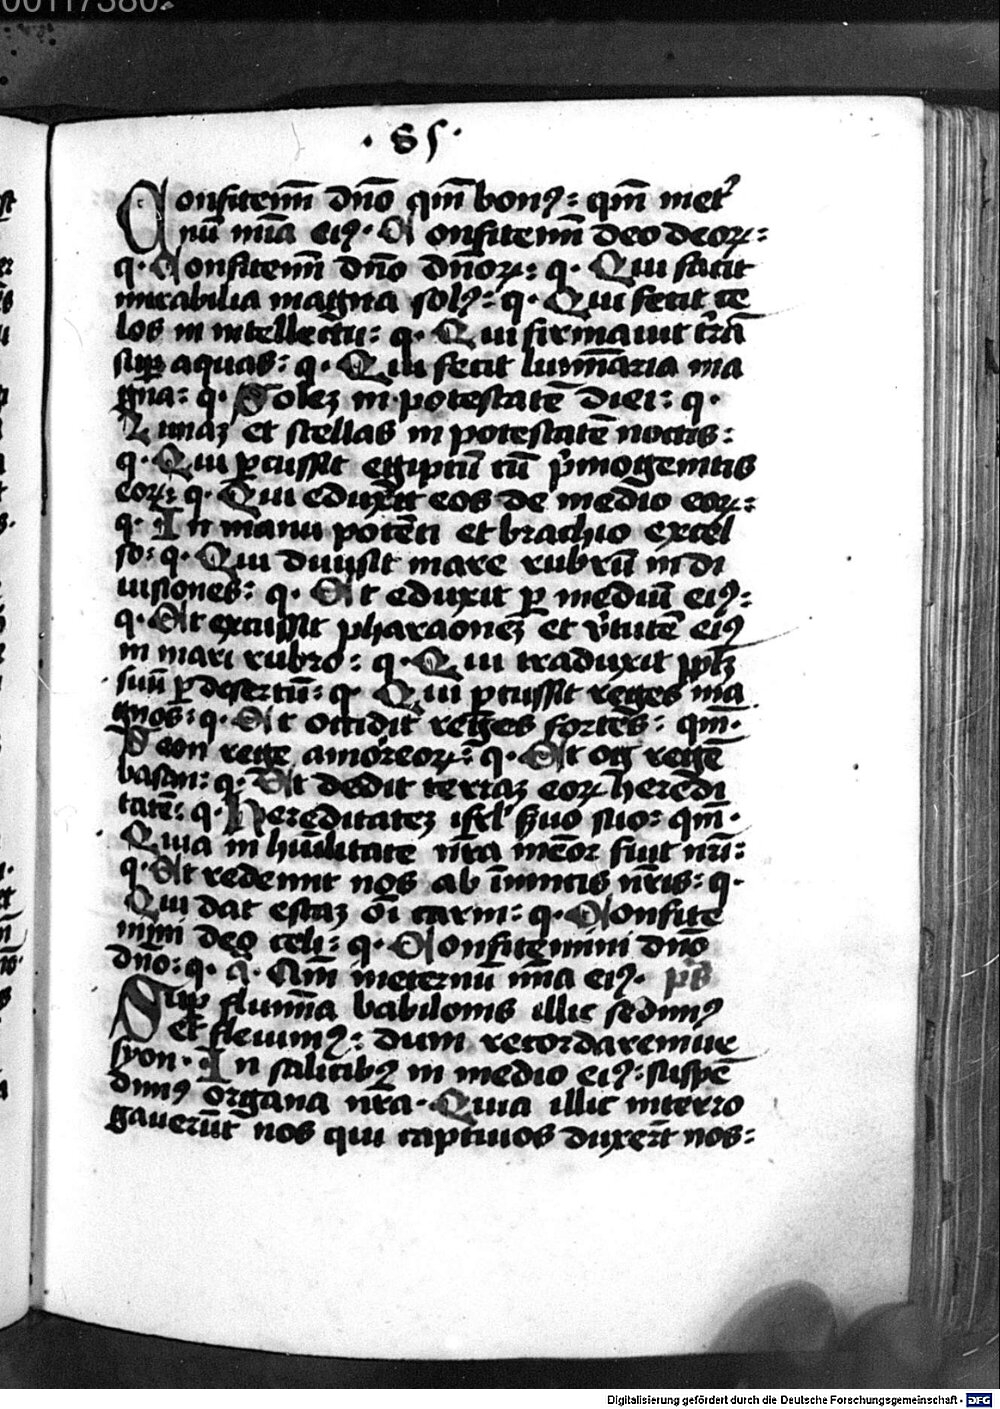 00117380.
· 85 ·
Confitemī dn̄o qm̄ bonꝰ: qm̄ ī et̾
nū mīa eiꝰ. Confitemī deo deoꝝ:
q. Confitemī dn̄o dn̄oꝝ: q. Qui facit
mirabilia magna solꝰ: q. Qui fecit ce
los in intellectu: q. Qui firmauit t̾rā
suꝑ aquas: q. Qui fecit lumīaria ma
gna: q. Soleꝫ in potestatē diei: q.
Lunaꝫ et stellas in potestatē noctis:
q. Qui ꝑcussit egiptū cū p̾mogenitis
eoꝝ: q. Qui eduxit eos de medio eoꝝ:
q. In manu potēti et brachio excel
so: q. Qui diuisit mare rubrū in di
uisiones: q. Et eduxit ꝑ mediū eiꝰ:
q. Et excussit pharaoneꝫ et v̾tutē eiꝰ
in mari rubro: q. Qui traduxit pplꝫ
suū ꝑ desertū: q. Qui ꝑcussit reges ma
gnos: q. Et occidit reges fortes: qm̄.
Seon rege amoreoꝝ: q. Et og regē
basan: q. Et dedit terraꝫ eoꝝ heredi
tatē: q. Hereditateꝫ isrl̾ s̾uo suo: qm̄.
Quia in hūilitate nr̄a mēor fuit nr̄i:
q. Et redemit nos ab īimicis nr̄is: q.
Qui dat escaꝫ oī carni: q. Confite
mini deo celi: q. Confitemini dn̄o
dn̄o: q. a. Qm̄ in eternū mīa eiꝰ. p̄s
Suꝑ flumīa babilonis illic sedimꝰ
et fleuimꝰ: dum recordaremur
syon. In salicibꝰ in medio eiꝰ: suspē
dimꝰ organa nr̄a. Quia illic interro
gauerūt nos qui captiuos duxer̄t nos:
Digitalisierung gefördert durch die Deutsche Forschungsgemeinschaft - DFG